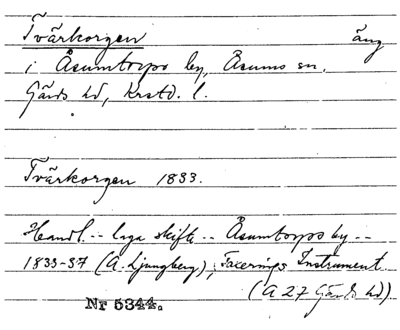 Tvärkorgen äng
i Åsumtorps by, Åsums sn.
Gärds hd, Krstd. l.
Tvärkorgen 1833.
Handl. -- laga skifte -- Åsumtorps by --
1833-37 (A. Ljungberg); Taxerings Instrument
(A 27 Gärds hd)
Nr 5344.